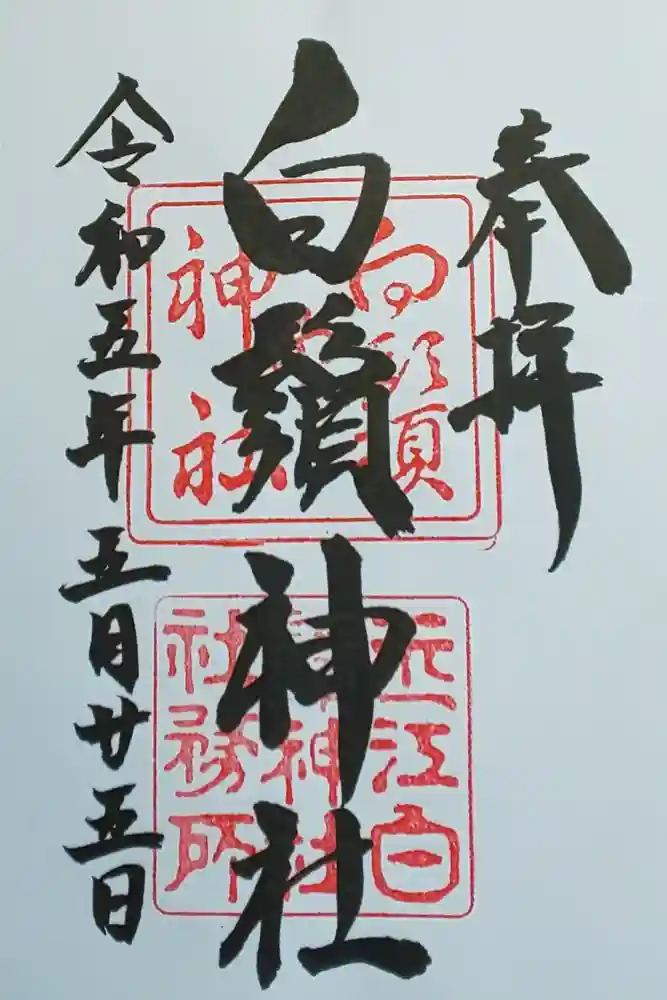 奉拝
白鬚神社
令和五年五月廿五日
白鬚
神社
近江白
鬚神社
社務所